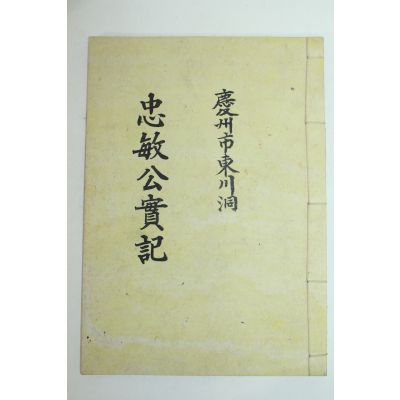 慶州市東川洞
忠敏公實記